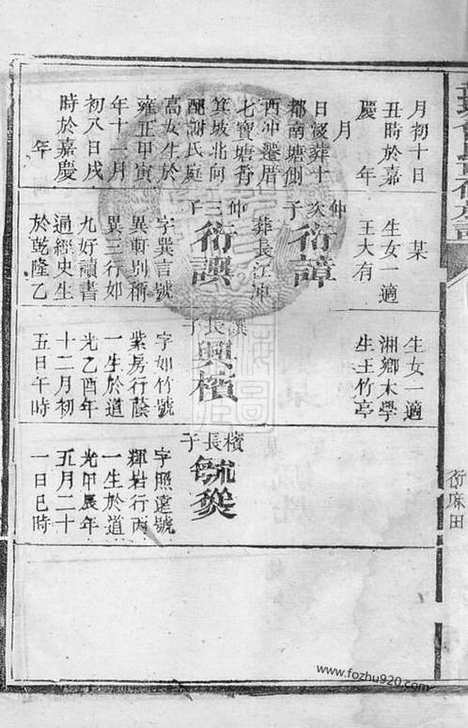 月初十日
丑時於嘉
慶　年
月
日淩葬十
都南塘側
酉冲鑾厝
七寶塘脊
箕坡北向
配謝氏庭
高女生於
雍正甲寅
年十一月
初八日戌
時於嘉慶
年
某
生女一適
王大有
仲次子
衍諱
葬長江冲
仲三丁
衍譔
字巽言號
巽軒別稱
異三行如
九好讀書
通經史生
於乾隆乙
生女一適
湘鄉木學
生王竹亭
譔長子
興檳
字如竹號
紫房行蔭
一生於道
光乙酉年
十二月初
五日午時
檳長子
毓
字照遠號
輝岩行丙
一生於道
光甲辰年
五月二十
一日巳時
衍麻田
www.fozhu920.com